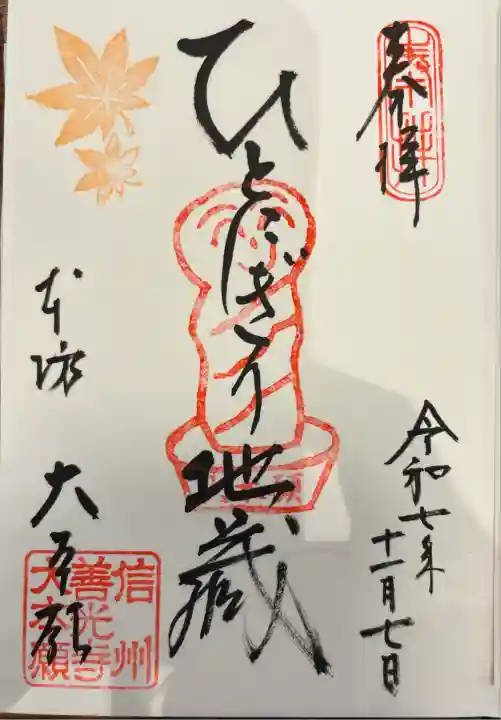 奉拝
奉拝
令和七年
十一月七日
ひとにぎり地蔵
本坊
大本願
信州
善光寺
大本願